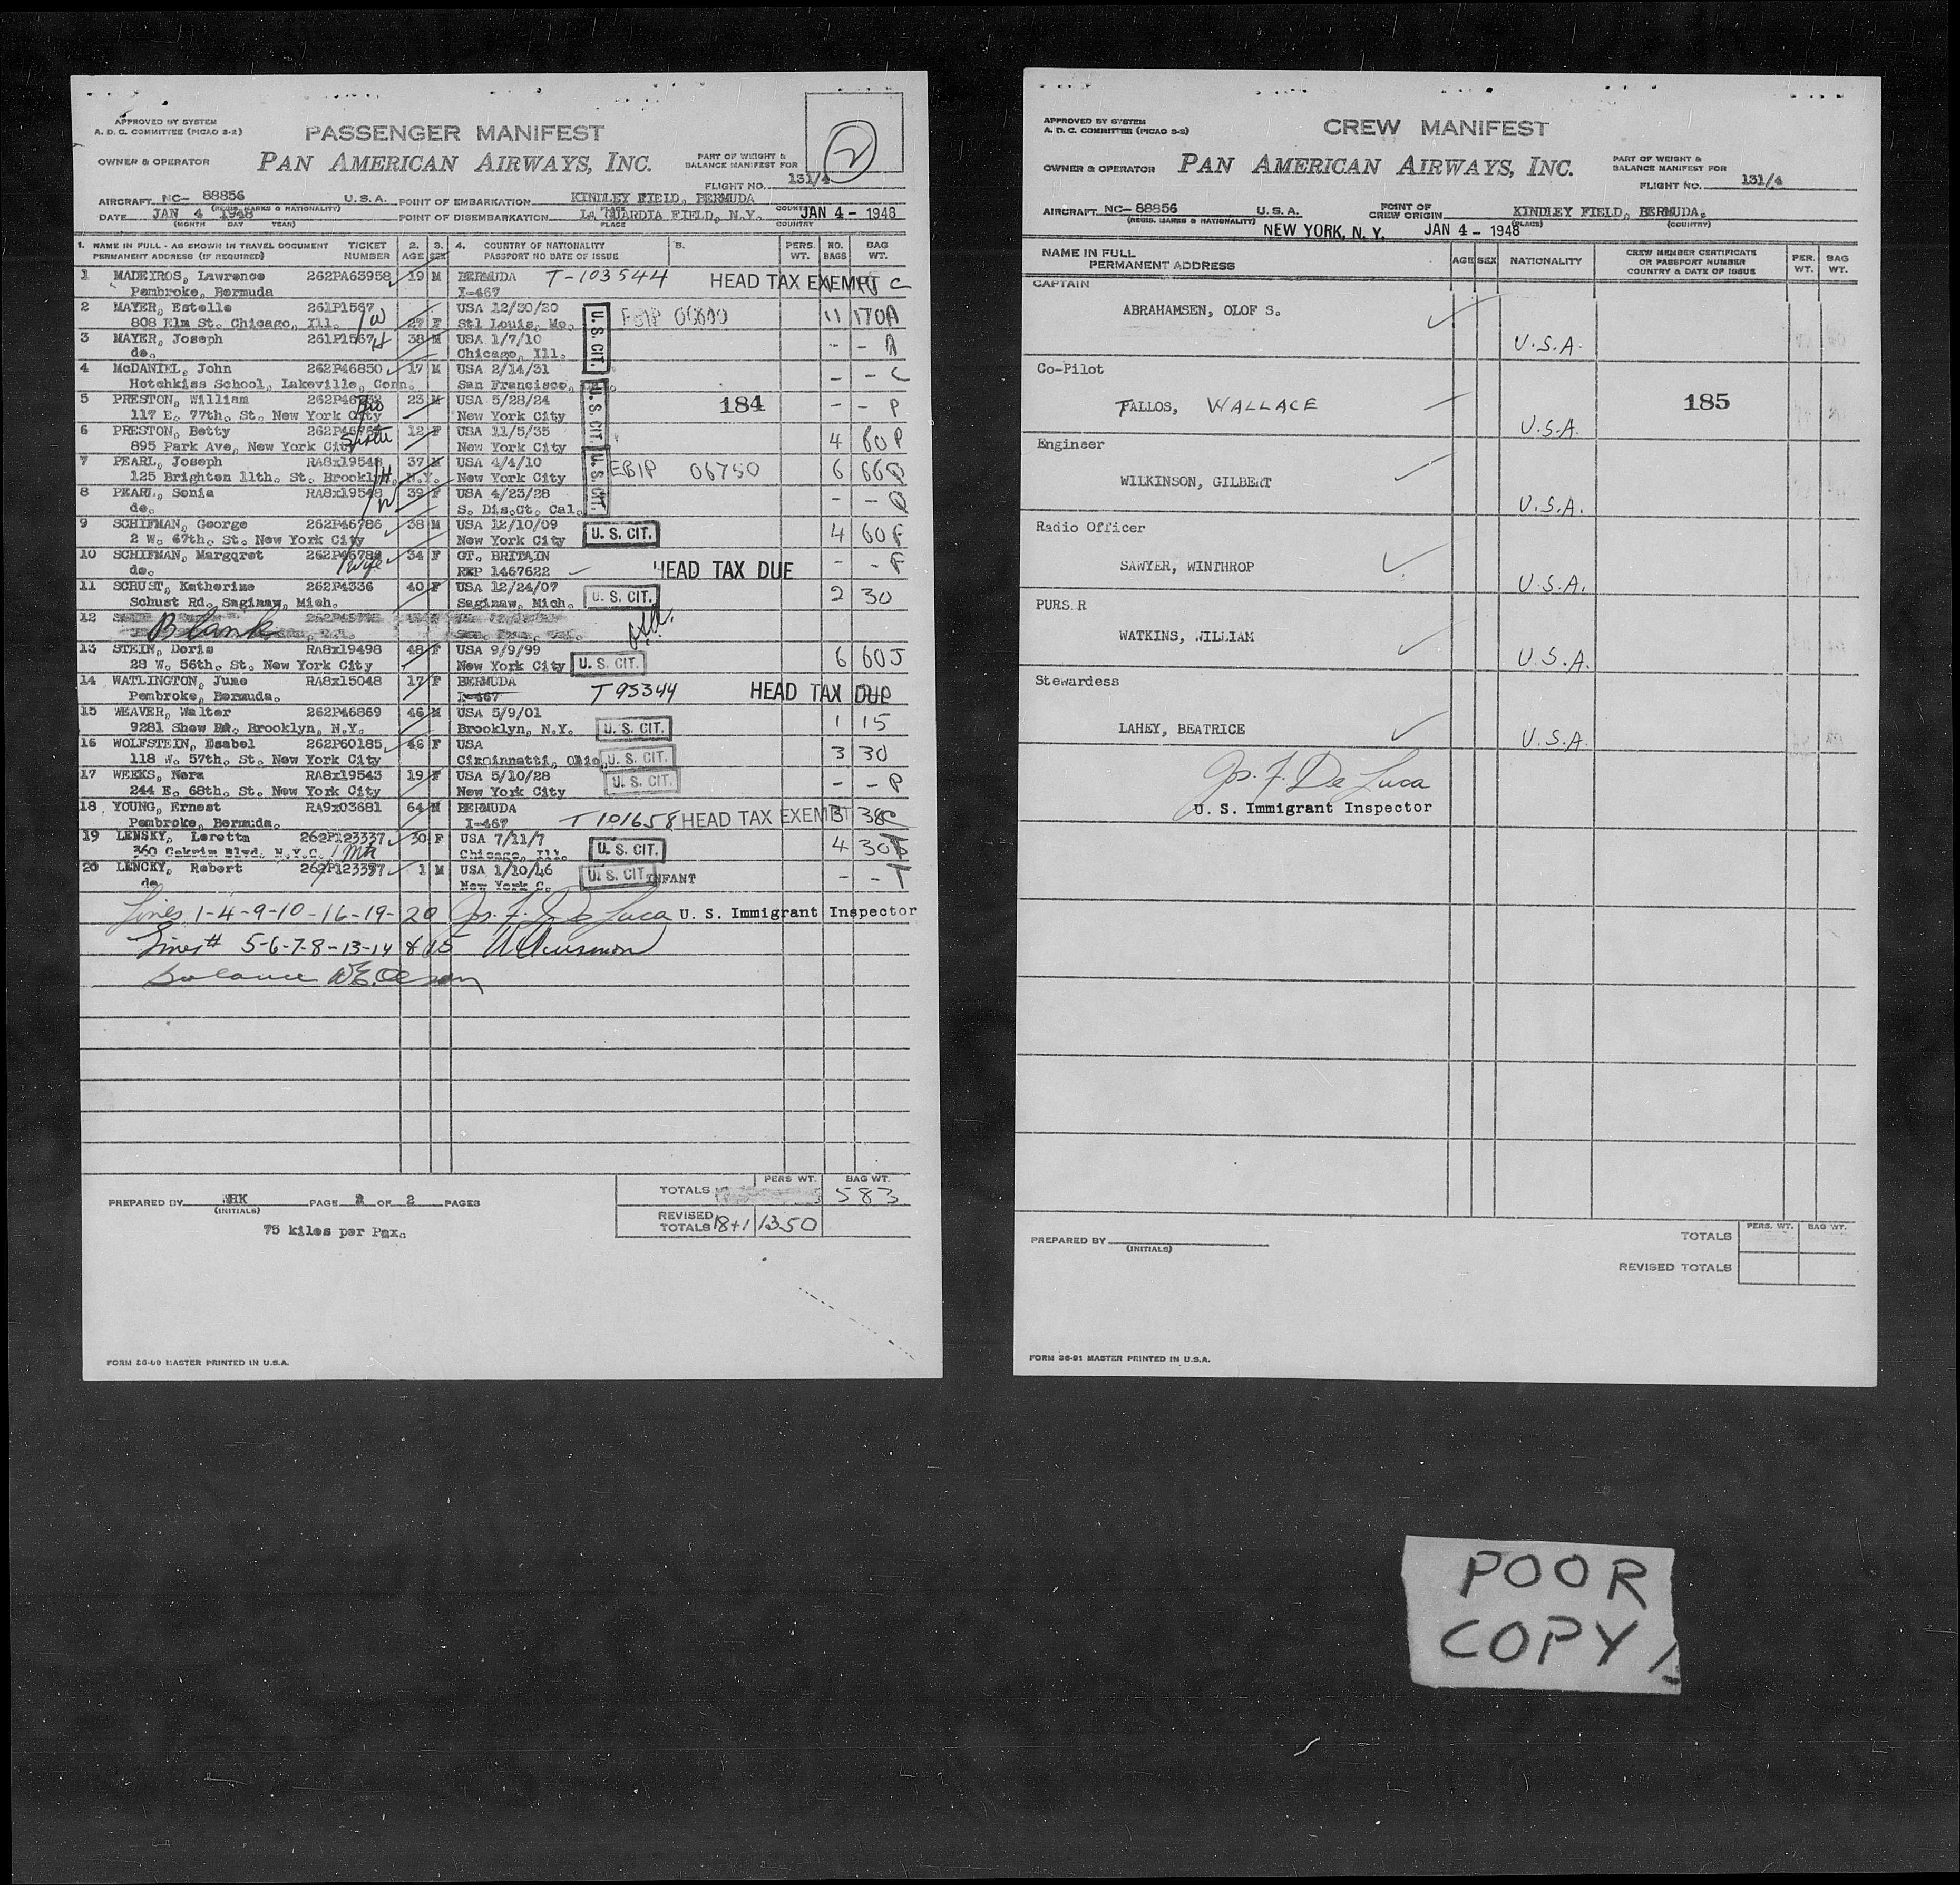 APPROVED BY SYSTEM
A. D. C. COMMITTEE (PICAO 2-2)
PASSENGER MANIFEST
2
OWNER & OPERATOR PAN AMERICAN AIRWAYS, INC. PART OF WEIGHT & BALANCE MANIFEST FOR
FLIGHT NO. 131/4
AIRCRAFT NC- 88856 U.S.A. POINT OF EMBARKATION KINDLEY FIELD, BERMUDA
(REGIS. MARKS & NATIONALITY) PLACE COUNTRY
DATE JAN 4 1948 POINT OF DISEMBARKATION LA GUARDIA FIELD, N.Y. JAN 4 - 1948
(MONTH DAY YEAR) PLACE COUNTRY
1. NAME IN FULL - AS SHOWN IN TRAVEL DOCUMENT TICKET 2. 3. 4. COUNTRY OF NATIONALITY 5. PERS. NO. BAG
PERMANENT ADDRESS (IF REQUIRED) NUMBER AGE SEX PASSPORT NO DATE OF ISSUE WT. BAGS WT.
1 MADEIROS, Lawrence 262PA63958 19 M BERMUDA T-103544 HEAD TAX EXEMPT C
Pembroke, Bermuda I-467
2 MAYER, Estelle 261P1567 W 27 F USA 12/30/20 U.S. CIT. 11 170A
808 Elm St. Chicago, Ill. Stl Louis, Mo.
3 MAYER, Joseph 261P1567 H 38 M USA 1/7/10 - - A
do. Chicago, Ill.
4 McDANIEL, John 262P46850 17 M USA 2/14/31 - - C
Hotchkiss School, Lakeville, Conn. San Francisco,
5 PRESTON, William Bro 23 M USA 5/28/24 U.S. CIT. 184 - - P
117 E. 77th. St. New York City New York City
6 PRESTON, Betty Sister 12 F USA 11/5/35 4 60P
895 Park Ave, New York City New York City
7 PEARL, Joseph RA8x19548 H 37 M USA 4/4/10 U.S. CIT. EBIP 06750 6 66Q
125 Brighton 11th. St. Brooklyn, N.Y. New York City
8 PEARL, Sonia RA8x19548 W 39 F USA 4/23/28 - - Q
do. S. Dis.Ct. Cal.
9 SCHIFMAN, George 262P46786 38 M USA 12/10/09 U.S. CIT. 4 60F
2 W. 67th. St. New York City New York City
10 SCHIFMAN, Margqret 262P46788 Wife 34 F GT. BRITAIN - - F
do. REP 1467622 HEAD TAX DUE
11 SCHUST, Katherine 262P4336 40 F USA 12/24/07 U.S. CIT. 2 30
Schust Rd. Saginaw, Mich. Saginaw, Mich.
12 Blank
13 STEIN, Doris RA8x19498 48 F USA 9/9/99 U.S. CIT. 6 60J
28 W. 56th. St. New York City New York City
14 WATLINGTON, June RA8x15048 17 F BERMUDA T95344 HEAD TAX DUE
Pembroke, Bermuda. I-467
15 WEAVER, Walter 262P46869 46 M USA 5/9/01 U.S. CIT. 1 15
9281 Shew Rd. Brooklyn, N.Y. Brooklyn, N.Y.
16 WOLFSTEIN, Esabel 262P60185 46 F USA U.S. CIT. 3 30
118 W. 57th. St. New York City Cincinnatti, Ohio
17 WEEKS, Nora RA8x19543 19 F USA 5/10/28 U.S. CIT. - - P
244 E. 68th. St. New York City New York City
18 YOUNG, Ernest RA9x03681 64 M BERMUDA T101658 HEAD TAX EXEMPT 3 38C
Pembroke, Bermuda. I-467
19 LENSKY, Loretta 262P123337 30 F USA 7/11/7 U.S. CIT. 4 30
360 Blvd. N.Y.C. Chicago, Ill.
20 LENCKY, Robert 262P123337 1 M USA 1/10/46 U.S. CIT. INFANT - - T
do New York C.
Lines 1-4-9-10-16-19-20 Jos. F. De Luca U. S. Immigrant Inspector
Lines# 5-6-7-8-13-14 & 15
Balance
PREPARED BY WHK PAGE 2 OF 2 PAGES
(INITIALS)
75 kilos per Pax.
PERS WT. BAG WT.
TOTALS 583
REVISED TOTALS 18+1 1350
FORM 36-90 MASTER PRINTED IN U.S.A.
APPROVED BY SYSTEM
A. D. C. COMMITTEE (PICAO 2-2)
CREW MANIFEST
OWNER & OPERATOR PAN AMERICAN AIRWAYS, INC. PART OF WEIGHT & BALANCE MANIFEST FOR
FLIGHT NO. 131/4
AIRCRAFT NC- 88856 U.S.A. POINT OF CREW ORIGIN KINDLEY FIELD, BERMUDA.
(REGIS. MARKS & NATIONALITY) (PLACE) (COUNTRY)
NEW YORK, N. Y. JAN 4 - 1948
NAME IN FULL AGE SEX NATIONALITY CREW MEMBER CERTIFICATE PER. BAG
PERMANENT ADDRESS OR PASSPORT NUMBER WT. WT.
COUNTRY & DATE OF ISSUE
CAPTAIN
ABRAHAMSEN, OLOF S.
U.S.A.
Co-Pilot
FALLOS, WALLACE 185
U.S.A.
Engineer
WILKINSON, GILBERT
U.S.A.
Radio Officer
SAWYER, WINTHROP
U.S.A.
PURS.R
WATKINS, WILLIAM
U.S.A.
Stewardess
LAHEY, BEATRICE
U.S.A.
Jos. F. De Luca
U. S. Immigrant Inspector
PREPARED BY
(INITIALS)
PERS. WT. BAG WT.
TOTALS
REVISED TOTALS
FORM 36-91 MASTER PRINTED IN U.S.A.
POOR
COPY